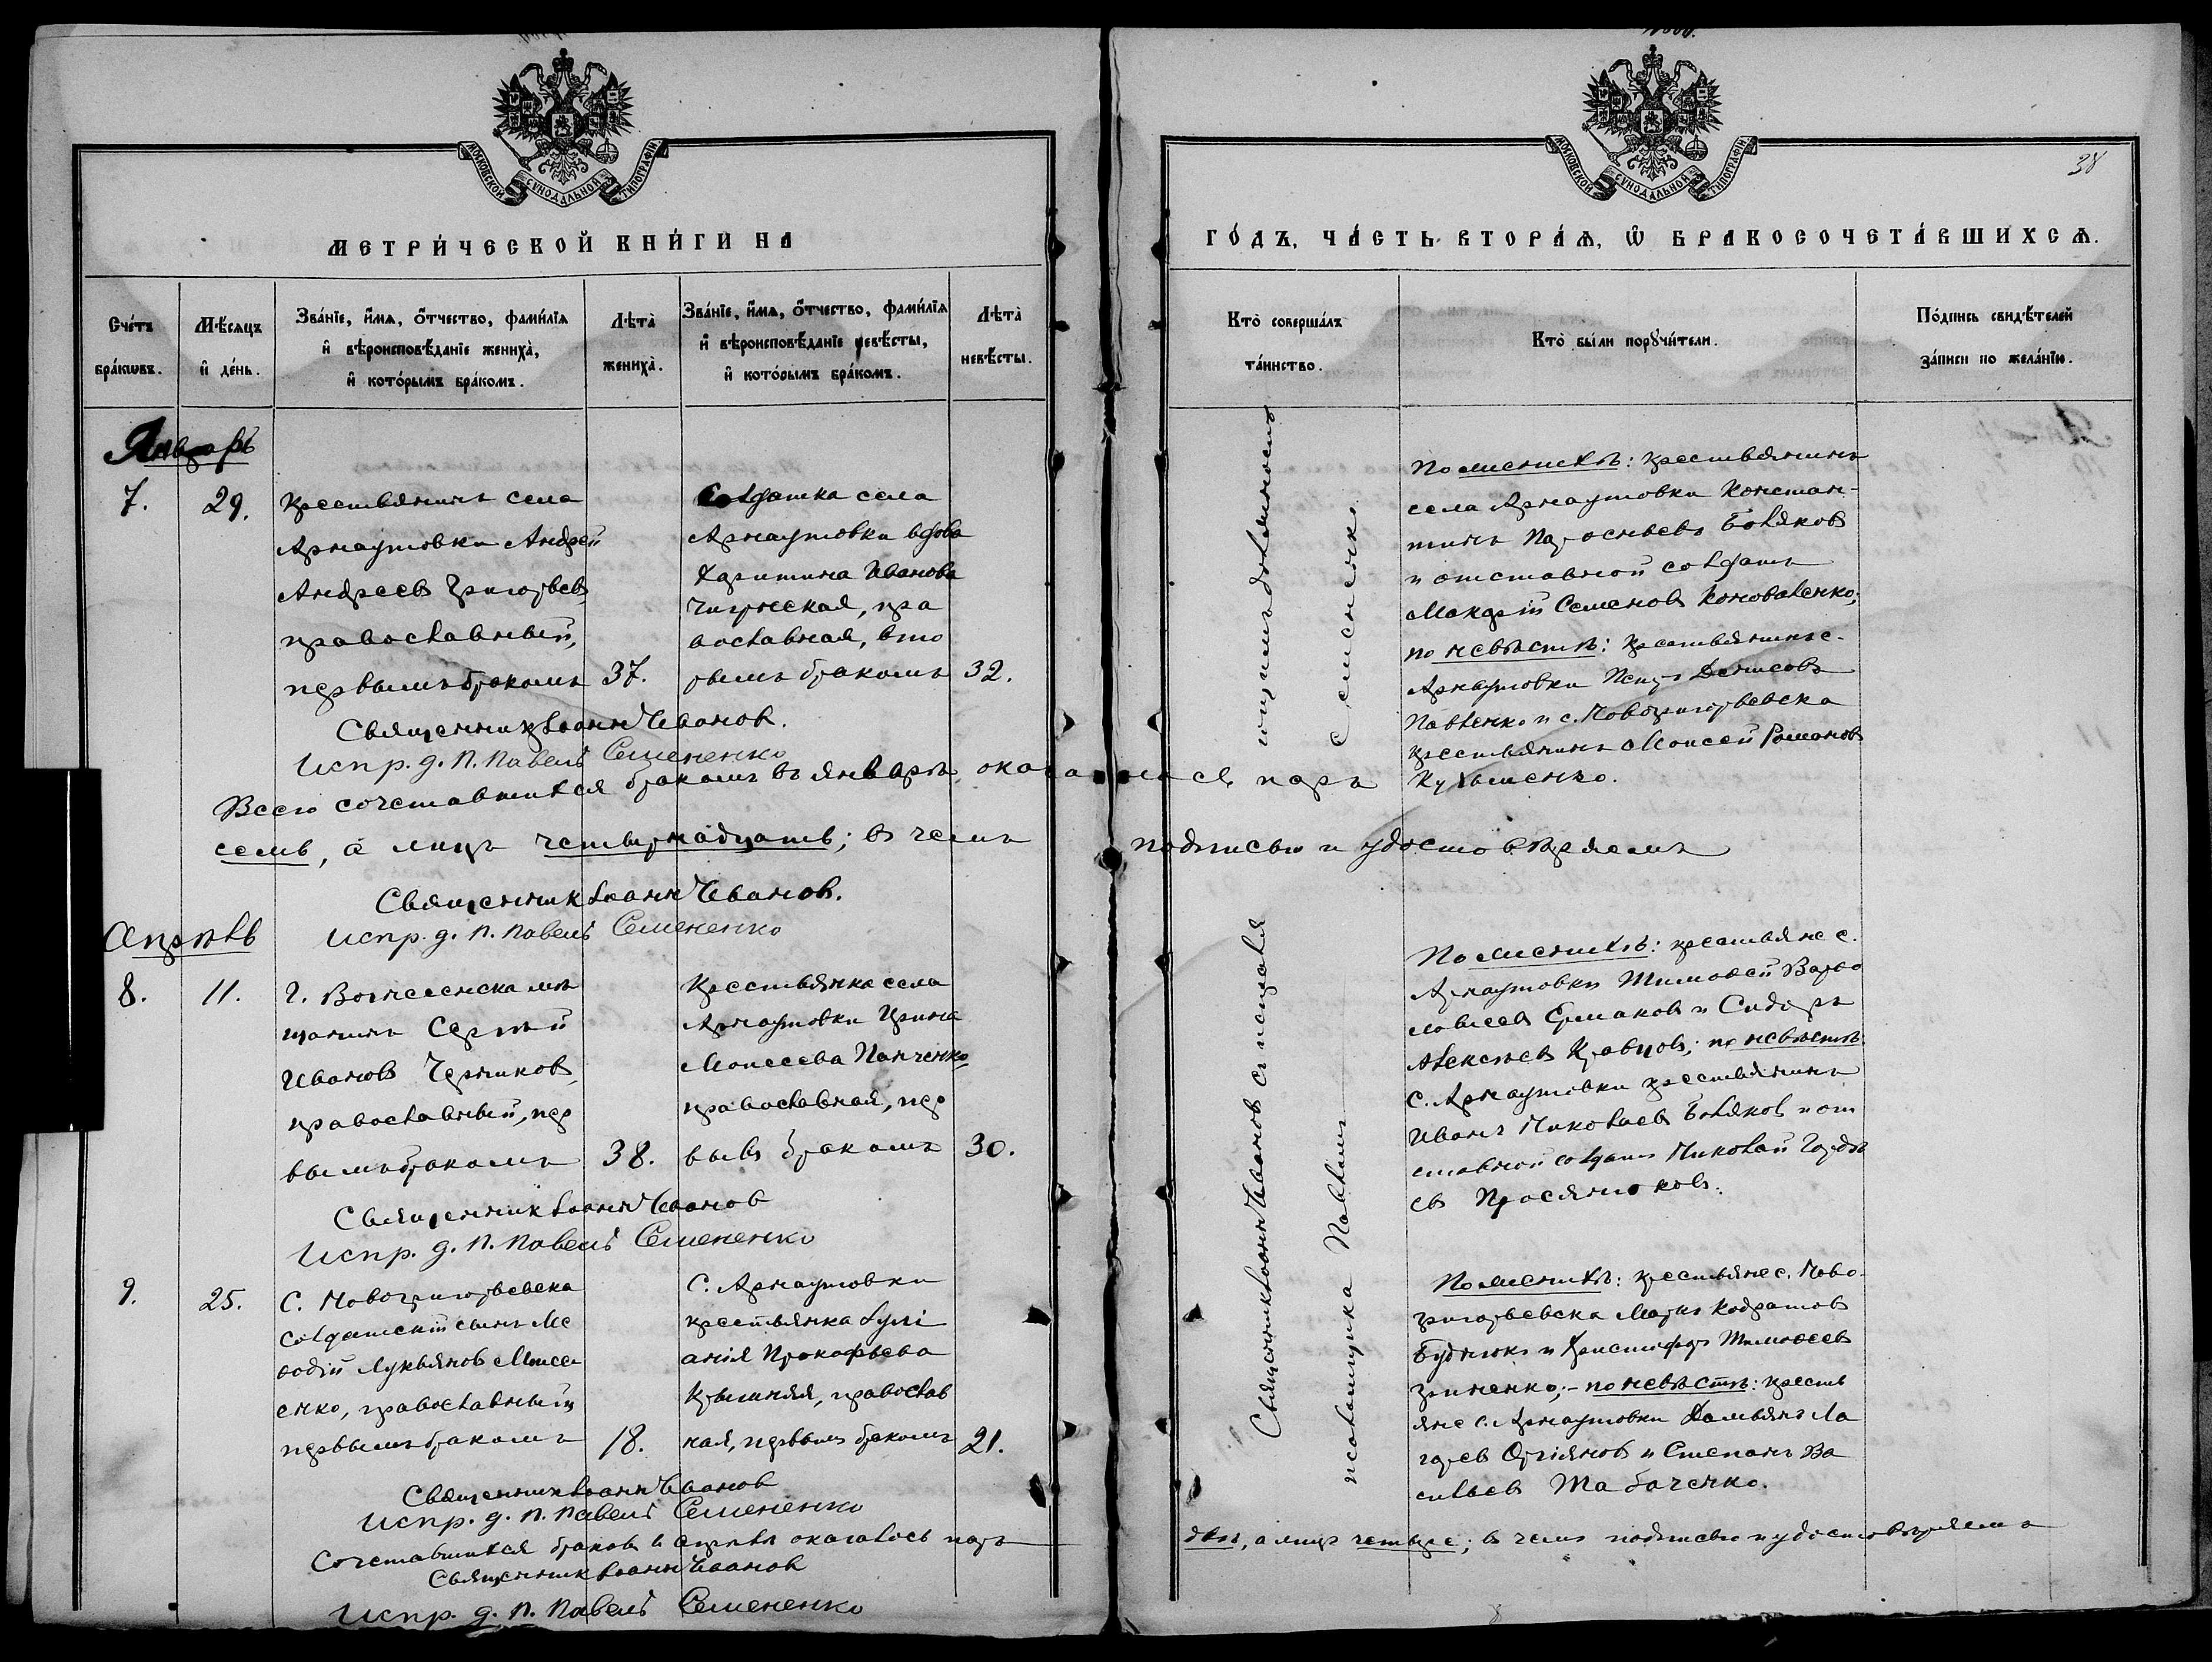 МОСКОВСКОЙ СУНОДАЛЬНОЙ ТИПОГРАФІИ
МЕТРИ́ЧЕСКОЙ КНИ́ГИ НА
Сче́тъ бра́кωвъ.
Мѣ́сяцъ и҆ де́нь.
Зва́нїе, и҆́мѧ, ѻ҆́тчество, фами́лїѧ
и҆ вѣроисповѣ́данїе жениха̀,
и҆ кото́рымъ бра́комъ.
Лѣта̀ жениха̀.
Зва́нїе, и҆́мѧ, ѻ҆́тчество, фами́лїѧ
и҆ вѣроисповѣ́данїе невѣ́сты,
и҆ кото́рымъ бра́комъ.
Лѣта̀ невѣ́сты.
Январь
7.
29.
Крестьянинъ села
Арнаутовки Андрей
Андреевъ Григорьевъ,
православный,
первымъ бракомъ
37.
Солдатка села
Арнаутовки вдова
Харитина Иванова
православная, вто
рымъ бракомъ
32.
Священникъ Іоаннъ Ивановъ.
Испр. д. П. Павелъ Семененко
Всего сочетавшихся бракомъ въ январѣ оказалося паръ
семь, а лицъ четырнадцать; въ чемъ подписью и удостовѣряемъ
Священникъ Іоаннъ Ивановъ.
Испр. д. П. Павелъ Семененко
Апрѣль
8.
11.
Г. Вознесенска мѣ
щанинъ Сергѣй
Ивановъ Черниковъ,
православный, пер
вымъ бракомъ
38.
Крестьянка села
Арнаутовки Ирина
Моисеева Панченко,
православная, пер
вымъ бракомъ
30.
Священникъ Іоаннъ Ивановъ
Испр. д. П. Павелъ Семененко
9.
25.
С. Новогригорьевска
солдатскій сынъ Ме
ѳодій Лукьяновъ Моисе
енко, православный
первымъ бракомъ
18.
С. Арнаутовки
крестьянка Іулі
анія Прокофьева
православ
ная, первымъ бракомъ
21.
Священникъ Іоаннъ Ивановъ
Испр. д. П. Павелъ Семененко
Сочетавшихся браковъ въ апрѣлѣ оказалось паръ
двѣ, а лицъ четыре; въ чемъ подписью и удостовѣряемъ
Священникъ Іоаннъ Ивановъ
Испр. д. П. Павелъ Семененко
МОСКОВСКОЙ СУНОДАЛЬНОЙ ТИПОГРАФІИ
38
ГО́ДЪ, ЧА́СТЬ ВТОРА́Ѧ, Ѿ БРАКОСОЧЕТА́ВШИХСѦ.
Кто̀ соверша́лъ
та́инство.
Кто̀ бы́ли порꙋчи́тели.
По́дпись свидѣ́телей
за́писи по жела́нїю.
Священникъ Іоаннъ Ивановъ съ исправля
ющимъ должность
псаломщика Павломъ
Семененко.
По женихѣ: крестьянинъ
села Арнаутовки Констан-
тинъ Боляковъ
и отставной солдатъ
Семеновъ Коноваленко;
по невѣстѣ: крестьянинъ с.
Арнаутовки Петръ Денисовъ
Павленко и с. Новогригорьевска
крестьянинъ Моисей Романовъ
Кузьменко.
По женихѣ: крестьяне с.
Арнаутовки Тимоѳей Варѳо
ломеевъ Ермаковъ и Сидоръ
Алексѣевъ Кравцовъ; по невѣстѣ:
с. Арнаутовки крестьянинъ
Иванъ Николаевъ Боляковъ и от
ставной солдатъ Николай Гордѣ
евъ Просянюковъ.
По женихѣ: крестьяне с. Ново-
григорьевска Кодратовъ
Буднюкъ и Христофоръ Тимоѳеевъ
Гриненко;- по невѣстѣ: кресть
яне с. Арнаутовки Дамьянъ Ла
заревъ и Степанъ Ва
сильевъ Табаченко.